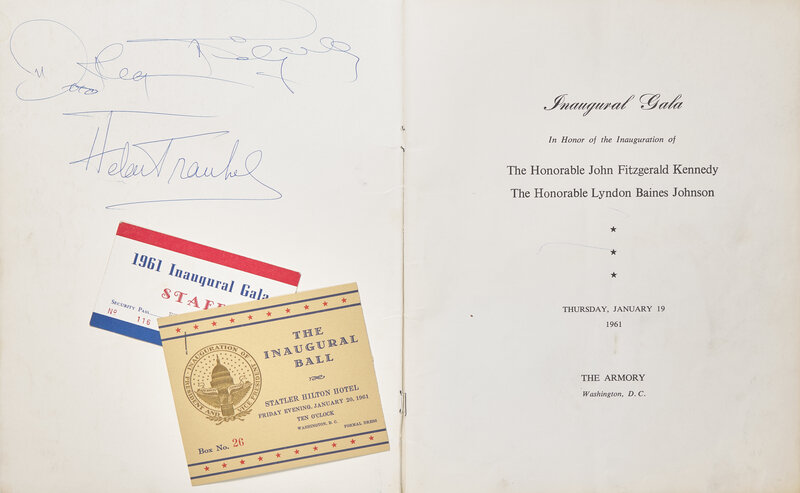 Helen Traubel
1961 Inaugural Gala
STAFF
SECURITY PASS
Nº 116
INAUGURATION OF PRESIDENT AND VICE PRESIDENT
THE
INAUGURAL
BALL
STATLER HILTON HOTEL
FRIDAY EVENING, JANUARY 20, 1961
TEN O'CLOCK
WASHINGTON, D. C. FORMAL DRESS
BOX NO. 26
Inaugural Gala
In Honor of the Inauguration of
The Honorable John Fitzgerald Kennedy
The Honorable Lyndon Baines Johnson
THURSDAY, JANUARY 19
1961
THE ARMORY
Washington, D. C.